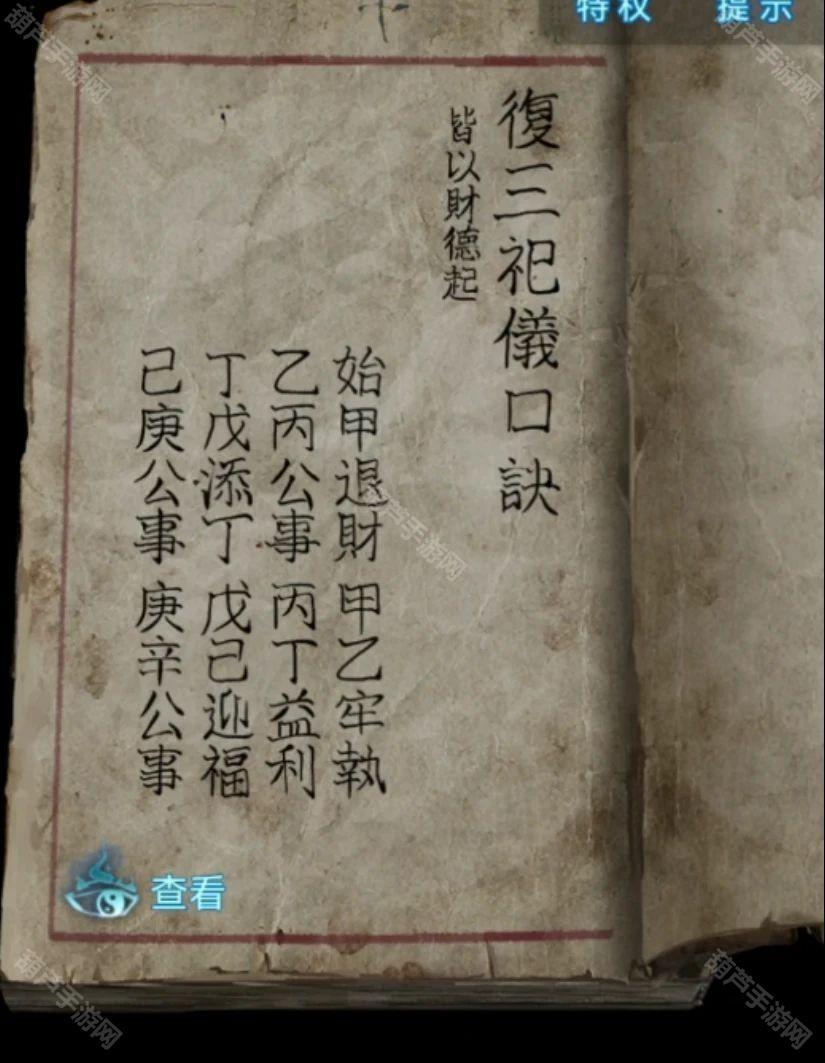 特权
提示
復三祀儀口訣
皆以財德起
始甲退財 甲乙牢執
乙丙公事 丙丁益利
丁戊添丁 戊己迎福
己庚公事 庚辛公事
查看
葫芦手游网
葫芦手游网
葫芦手游网
葫芦手游网
葫芦手游网